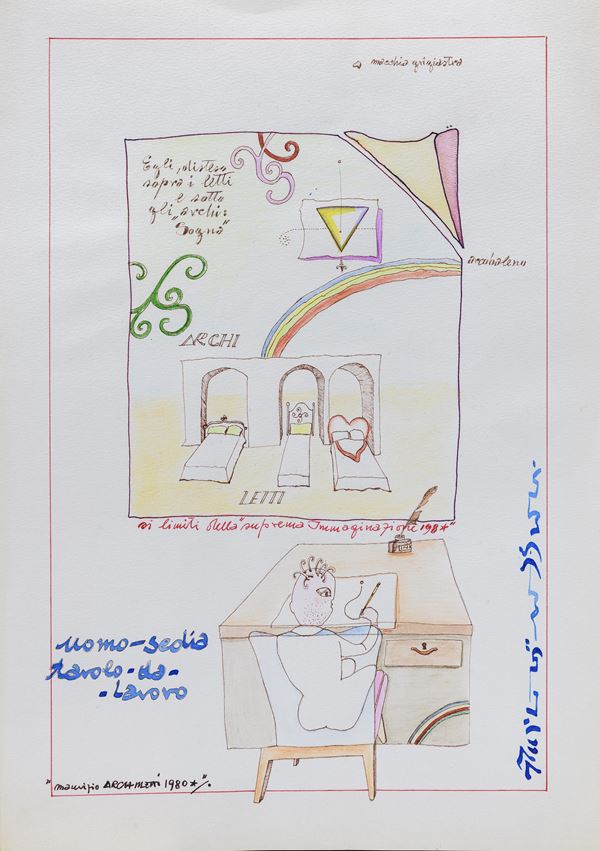 macchia grigiastra
Egli, disteso
sopra i letti
e sotto
gli "archi:
"Sogna"
arcobaleno
ARCHI
LETTI
ai limiti della "suprema Immaginazione 198*"
uomo-sedia
tavolo-da-
-lavoro
"maurizio 1980*".